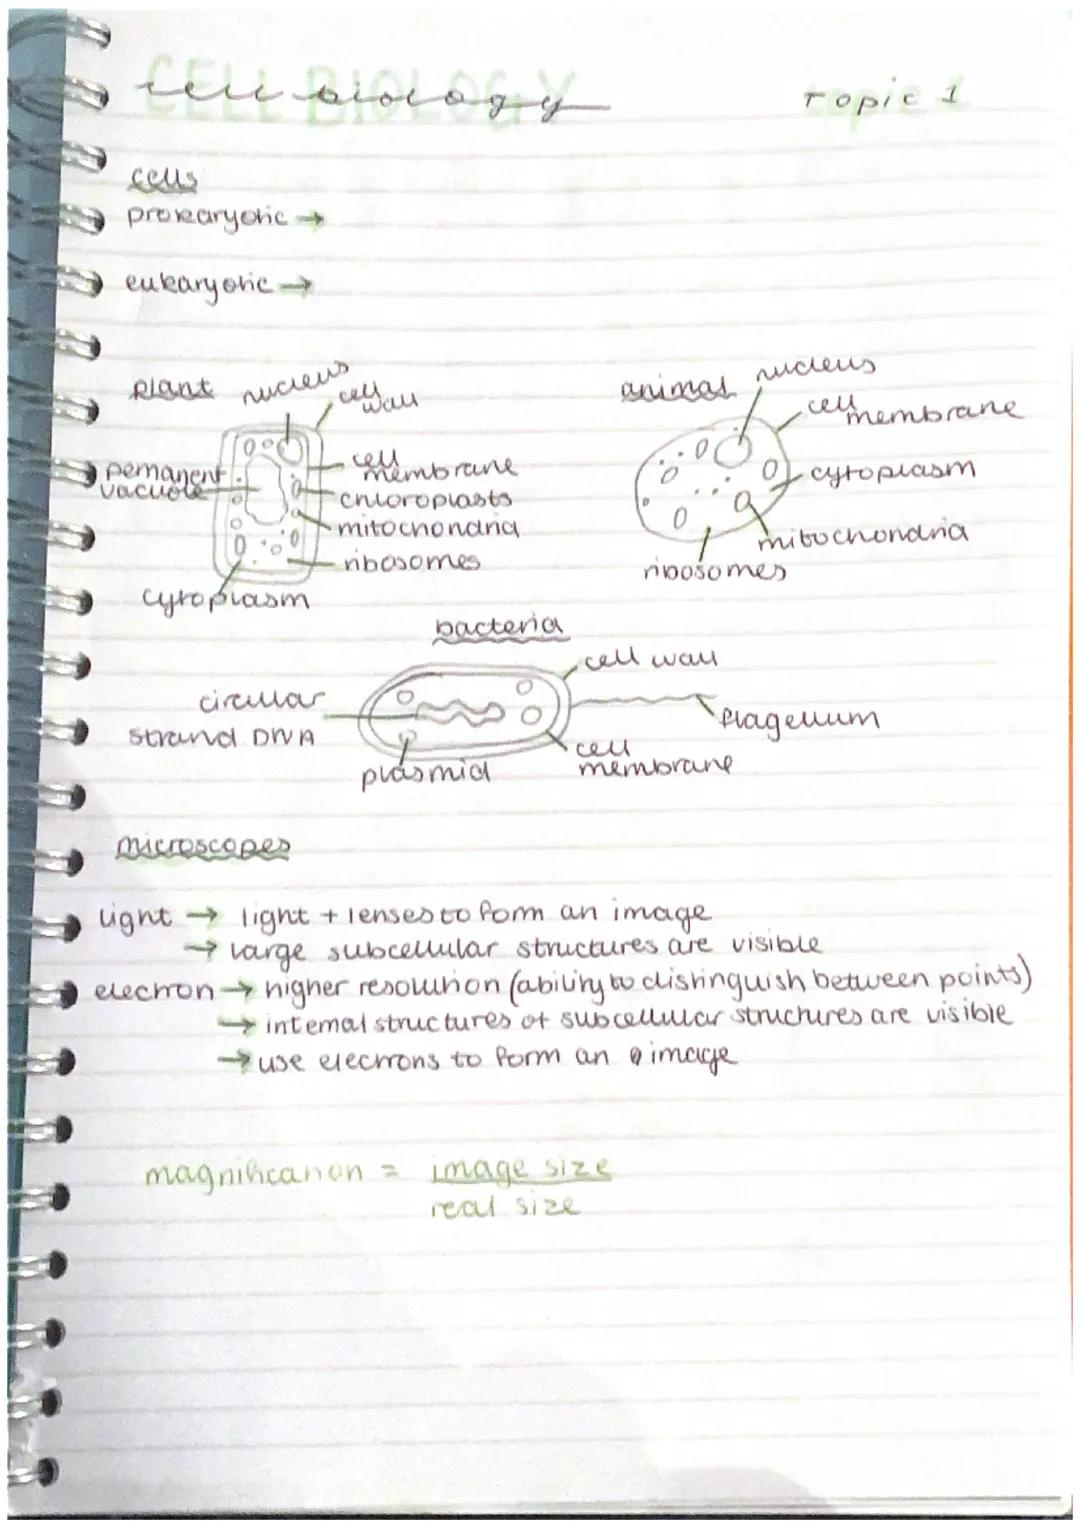 CELL BIOLOGY
cell biology
Topic 1
cells
prokaryotic →
eukaryotic →
plant
nucleus
cell wall
permanent vacuole
cell membrane
chloroplasts
mitochondria
ribosomes
cytoplasm
animal
nucleus
cell membrane
cytoplasm
mitochondria
ribosomes
bacteria
cell wall
circular
strand DNA
flagellum
plasmid
cell membrane
microscopes
light → light + lenses to form an image
→ large subcellular structures are visible
electron → higher resolution (ability to distinguish between points)
→ internal structures of subcellular structures are visible
→ use electrons to form an image
magnification = image size
real size